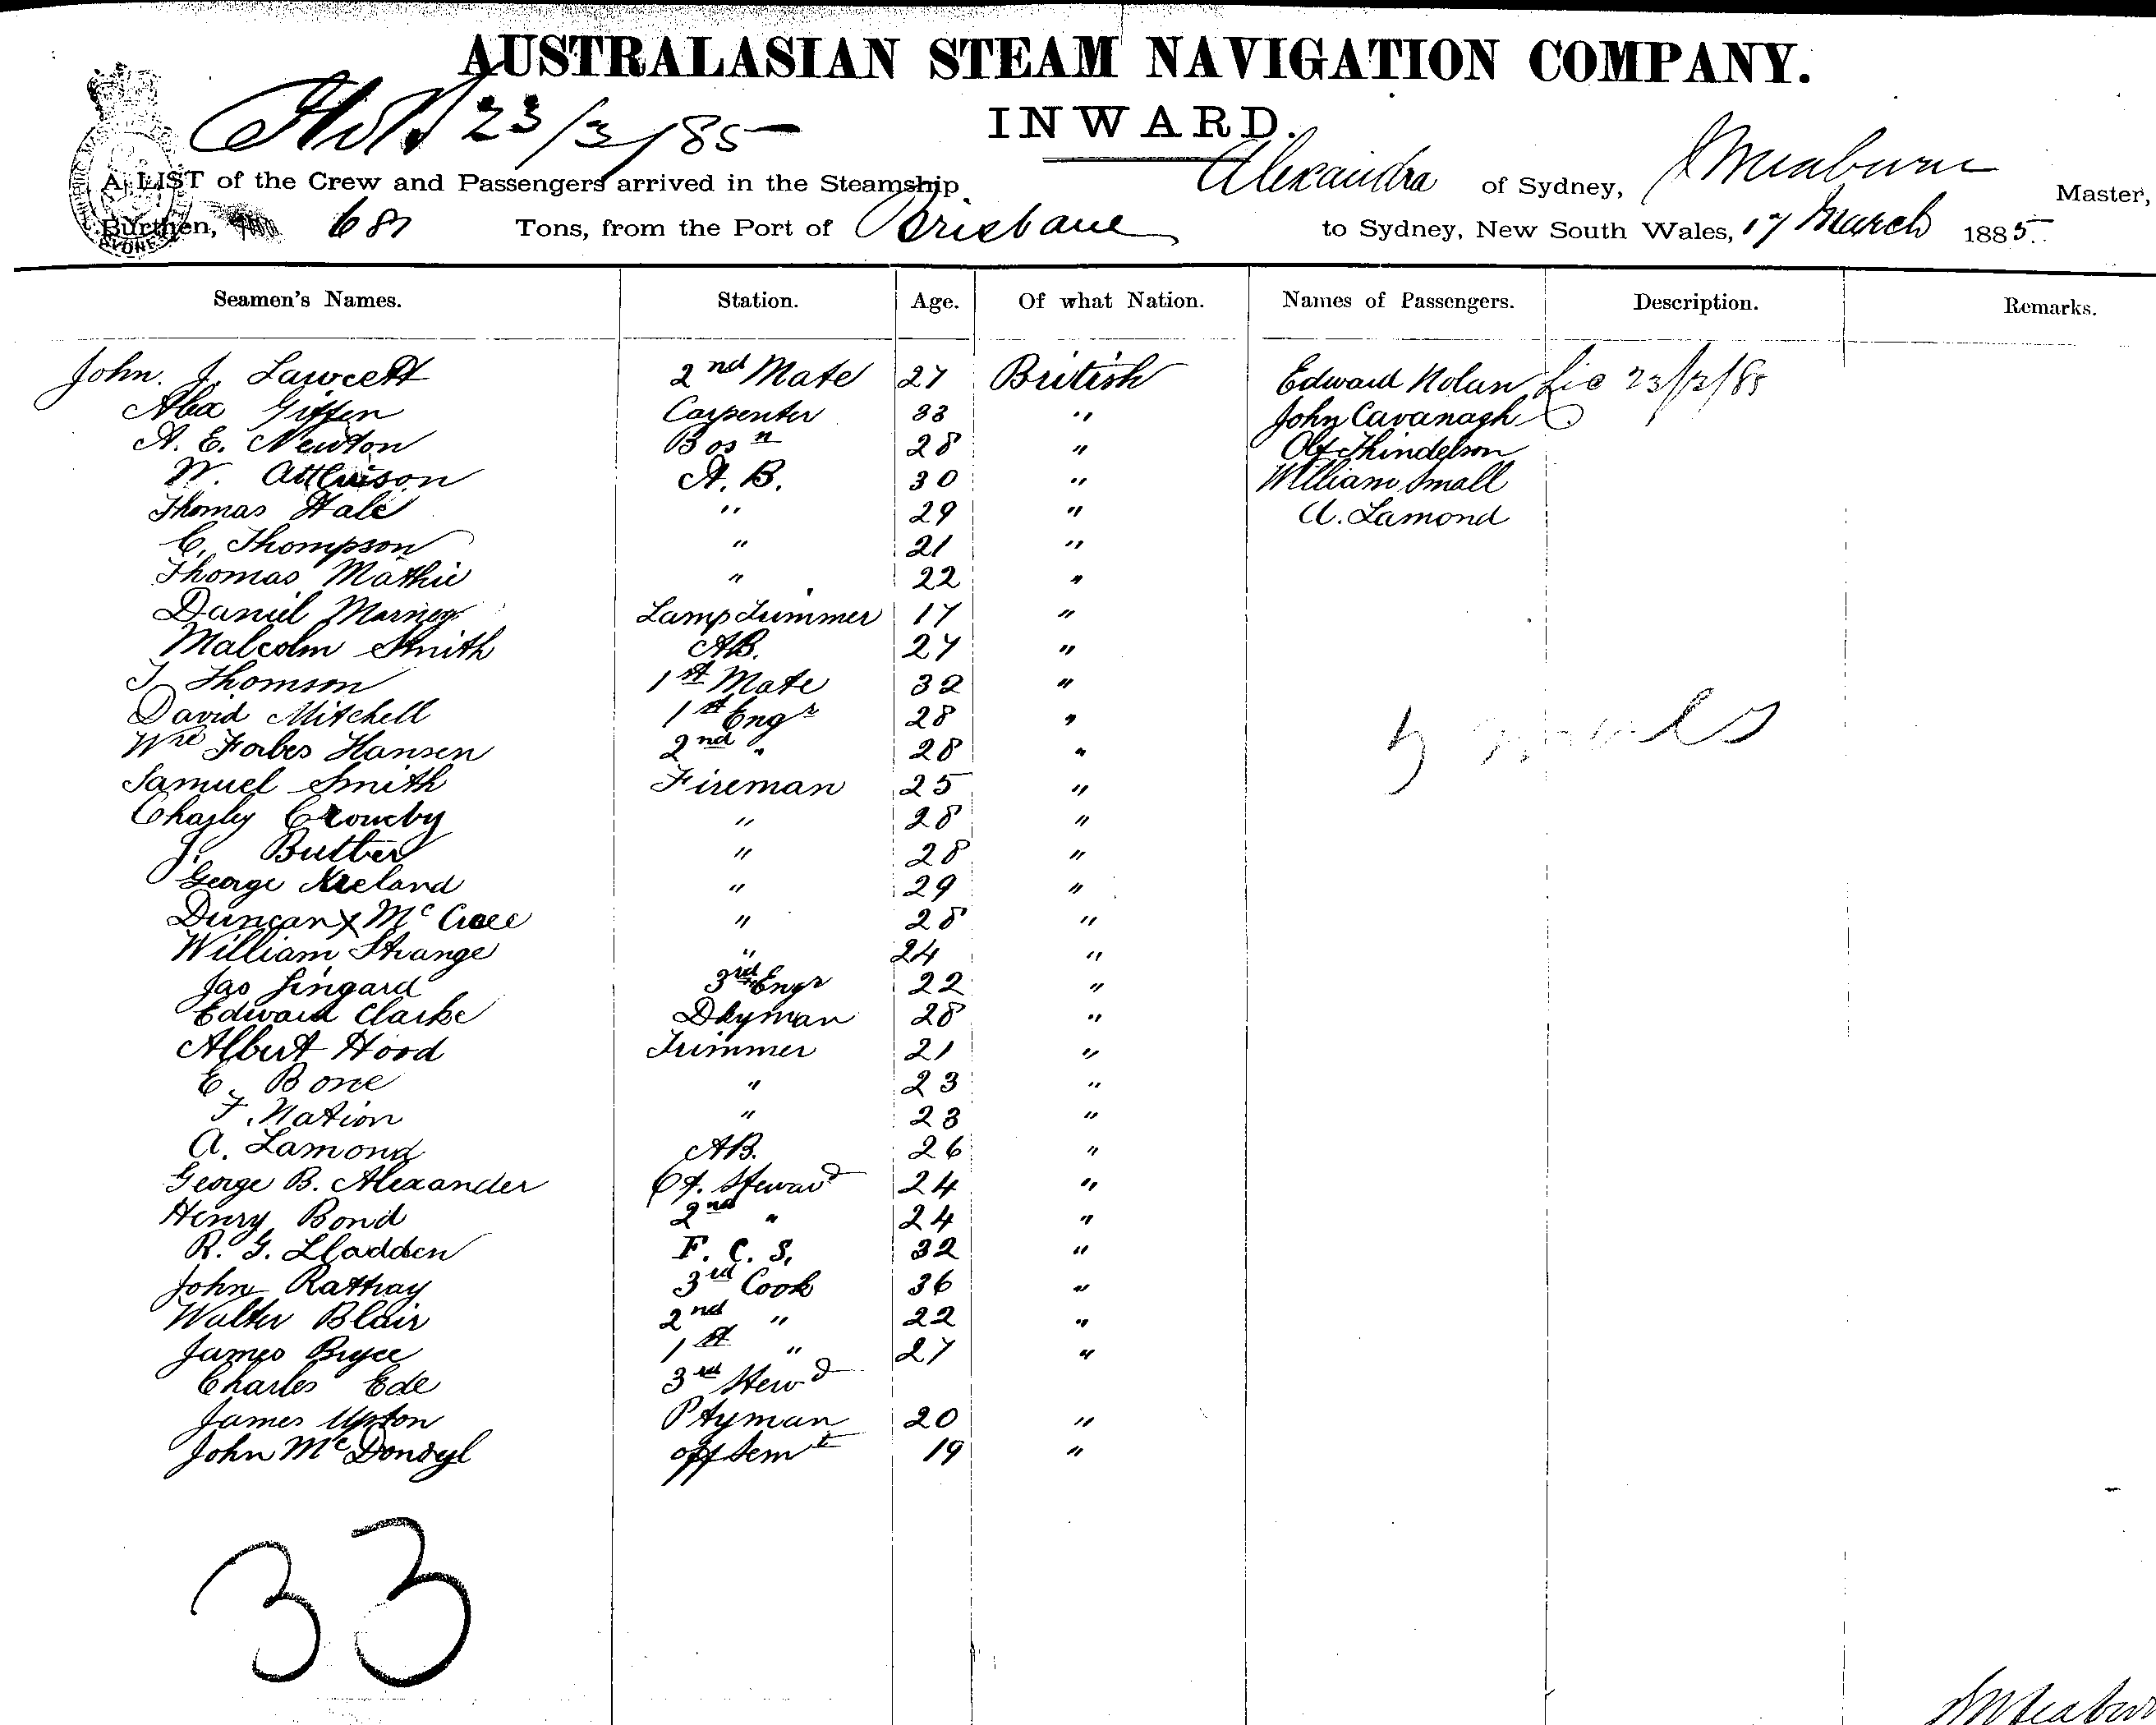 AUSTRALASIAN STEAM NAVIGATION COMPANY.
23/3/85
INWARD.
A LIST of the Crew and Passengers arrived in the Steamship Alexandra of Sydney, Master,
Burthen, 681 Tons, from the Port of Brisbane to Sydney, New South Wales, 17 March 1885
Seamen's Names. Station. Age. Of what Nation. Names of Passengers. Description. Remarks.
John. J. Lawcett 2nd Mate 27 British Edward Nolan Lic 23/3/85
Alex Giffen Carpenter 33 " John Cavanagh
A. E. Newton Bosn 28 "
W. A. B. 30 " William Small
Thomas Hale " 29 " A. Lamond
C. Thompson " 21 "
Thomas Mathie " 22 "
Daniel Lamp Trimmer 17 "
Malcolm Smith AB. 27 "
J Thomson 1st Mate 32 "
David Mitchell 1st Engr 28 "
Wm Forbes Hansen 2nd " 28 "
Samuel Smith Fireman 25 "
Charley " 28 "
J. Butler " 28 "
George " 29 "
Duncan X Mc " 28 "
William Strange " 24 "
Jas Lingard 3rd Engr 22 "
Edward Clarke Dkyman 28 "
Albert Hood Trimmer 21 "
E. Bone " 23 "
F. Nation " 23 "
A. Lamond AB. 26 "
George B. Alexander Steward 24 "
Henry Bond 2nd " 24 "
R. G. F. C. S. 32 "
John Rattray 3rd Cook 36 "
Walter Blair 2nd " 22 "
James Bryce 1st " 27 "
Charles Ede 3rd Stewd
James Upton Ptyman 20 "
John Mc 19 "
33